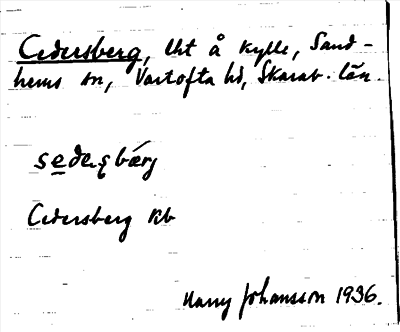 Cedersberg, lht å Kylle, Sand-
hems sn, Vartofta hd, Skarab. län.
Cedersberg Kb
Harry Johansson 1936.